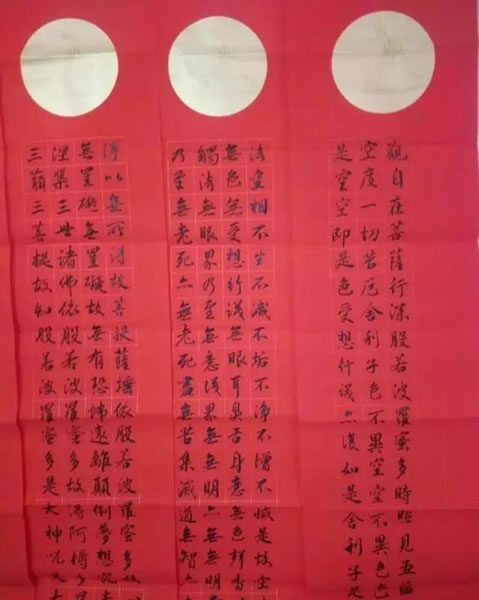 觀自在菩薩行深般若波羅蜜多時照見五蘊
空度一切苦厄舍利子色不異空空不異色色
是空空即是色受想行識亦復如是舍利子是
法空相不生不滅不垢不淨不增不減是故空
無色無受想行識無眼耳鼻舌身意無色聲香
觸法無眼界乃至無意識界無無明亦無無明
乃至無老死亦無老死盡無苦集滅道無智亦
得以無所得故菩提薩埵依般若波羅蜜多故
無罣礙無罣礙故無有恐怖遠離顛倒夢想究
涅槃三世諸佛依般若波羅蜜多故得阿耨多
三藐三菩提故知般若波羅蜜多是大神咒是大